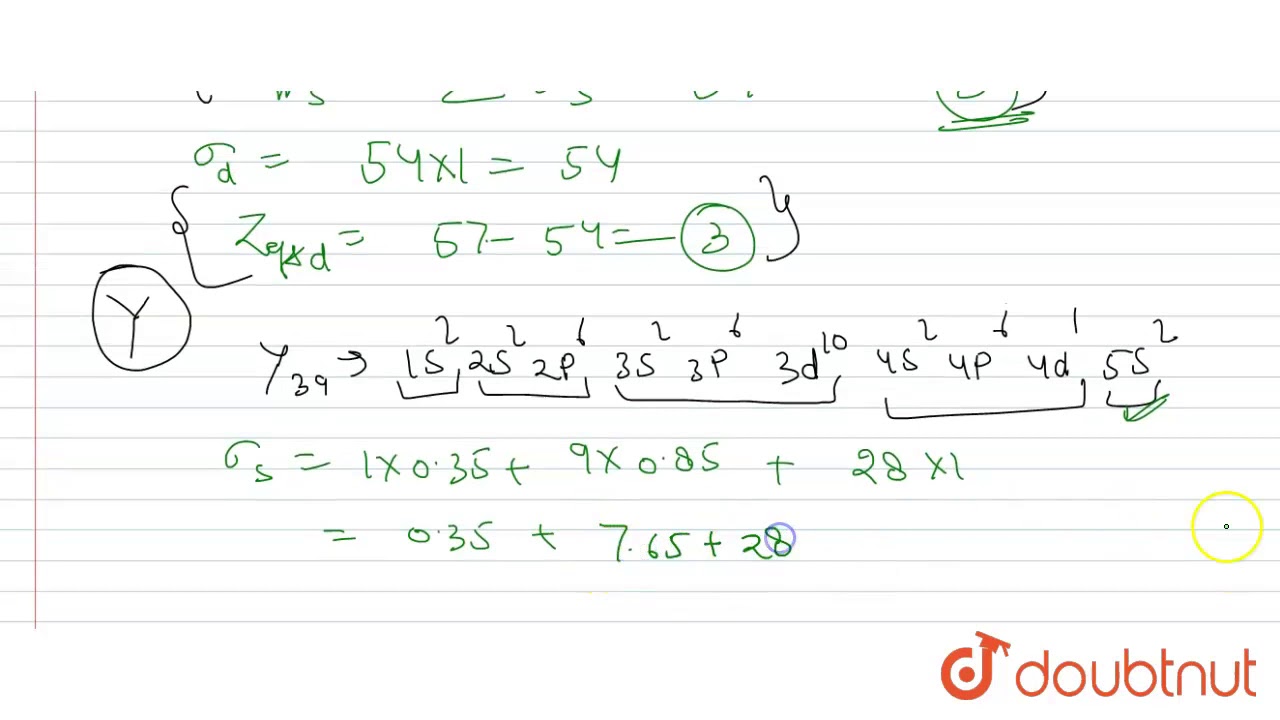 σd = 54×1 = 54
Zeff d = 57 - 54 = 3
Y
Y39 → 1S² 2S² 2P⁶ 3S² 3P⁶ 3d¹⁰ 4S² 4P⁶ 4d¹ 5S²
σs = 1×0.35 + 9×0.85 + 28×1
= 0.35 + 7.65 + 28
doubtnut